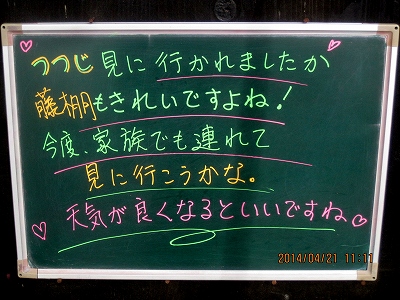 つつじ見に行かれましたか
藤棚もきれいですよね!
今度、家族でも連れて
見に行こうかな。
天気が良くなるといいですね
2014/04/21 11:11